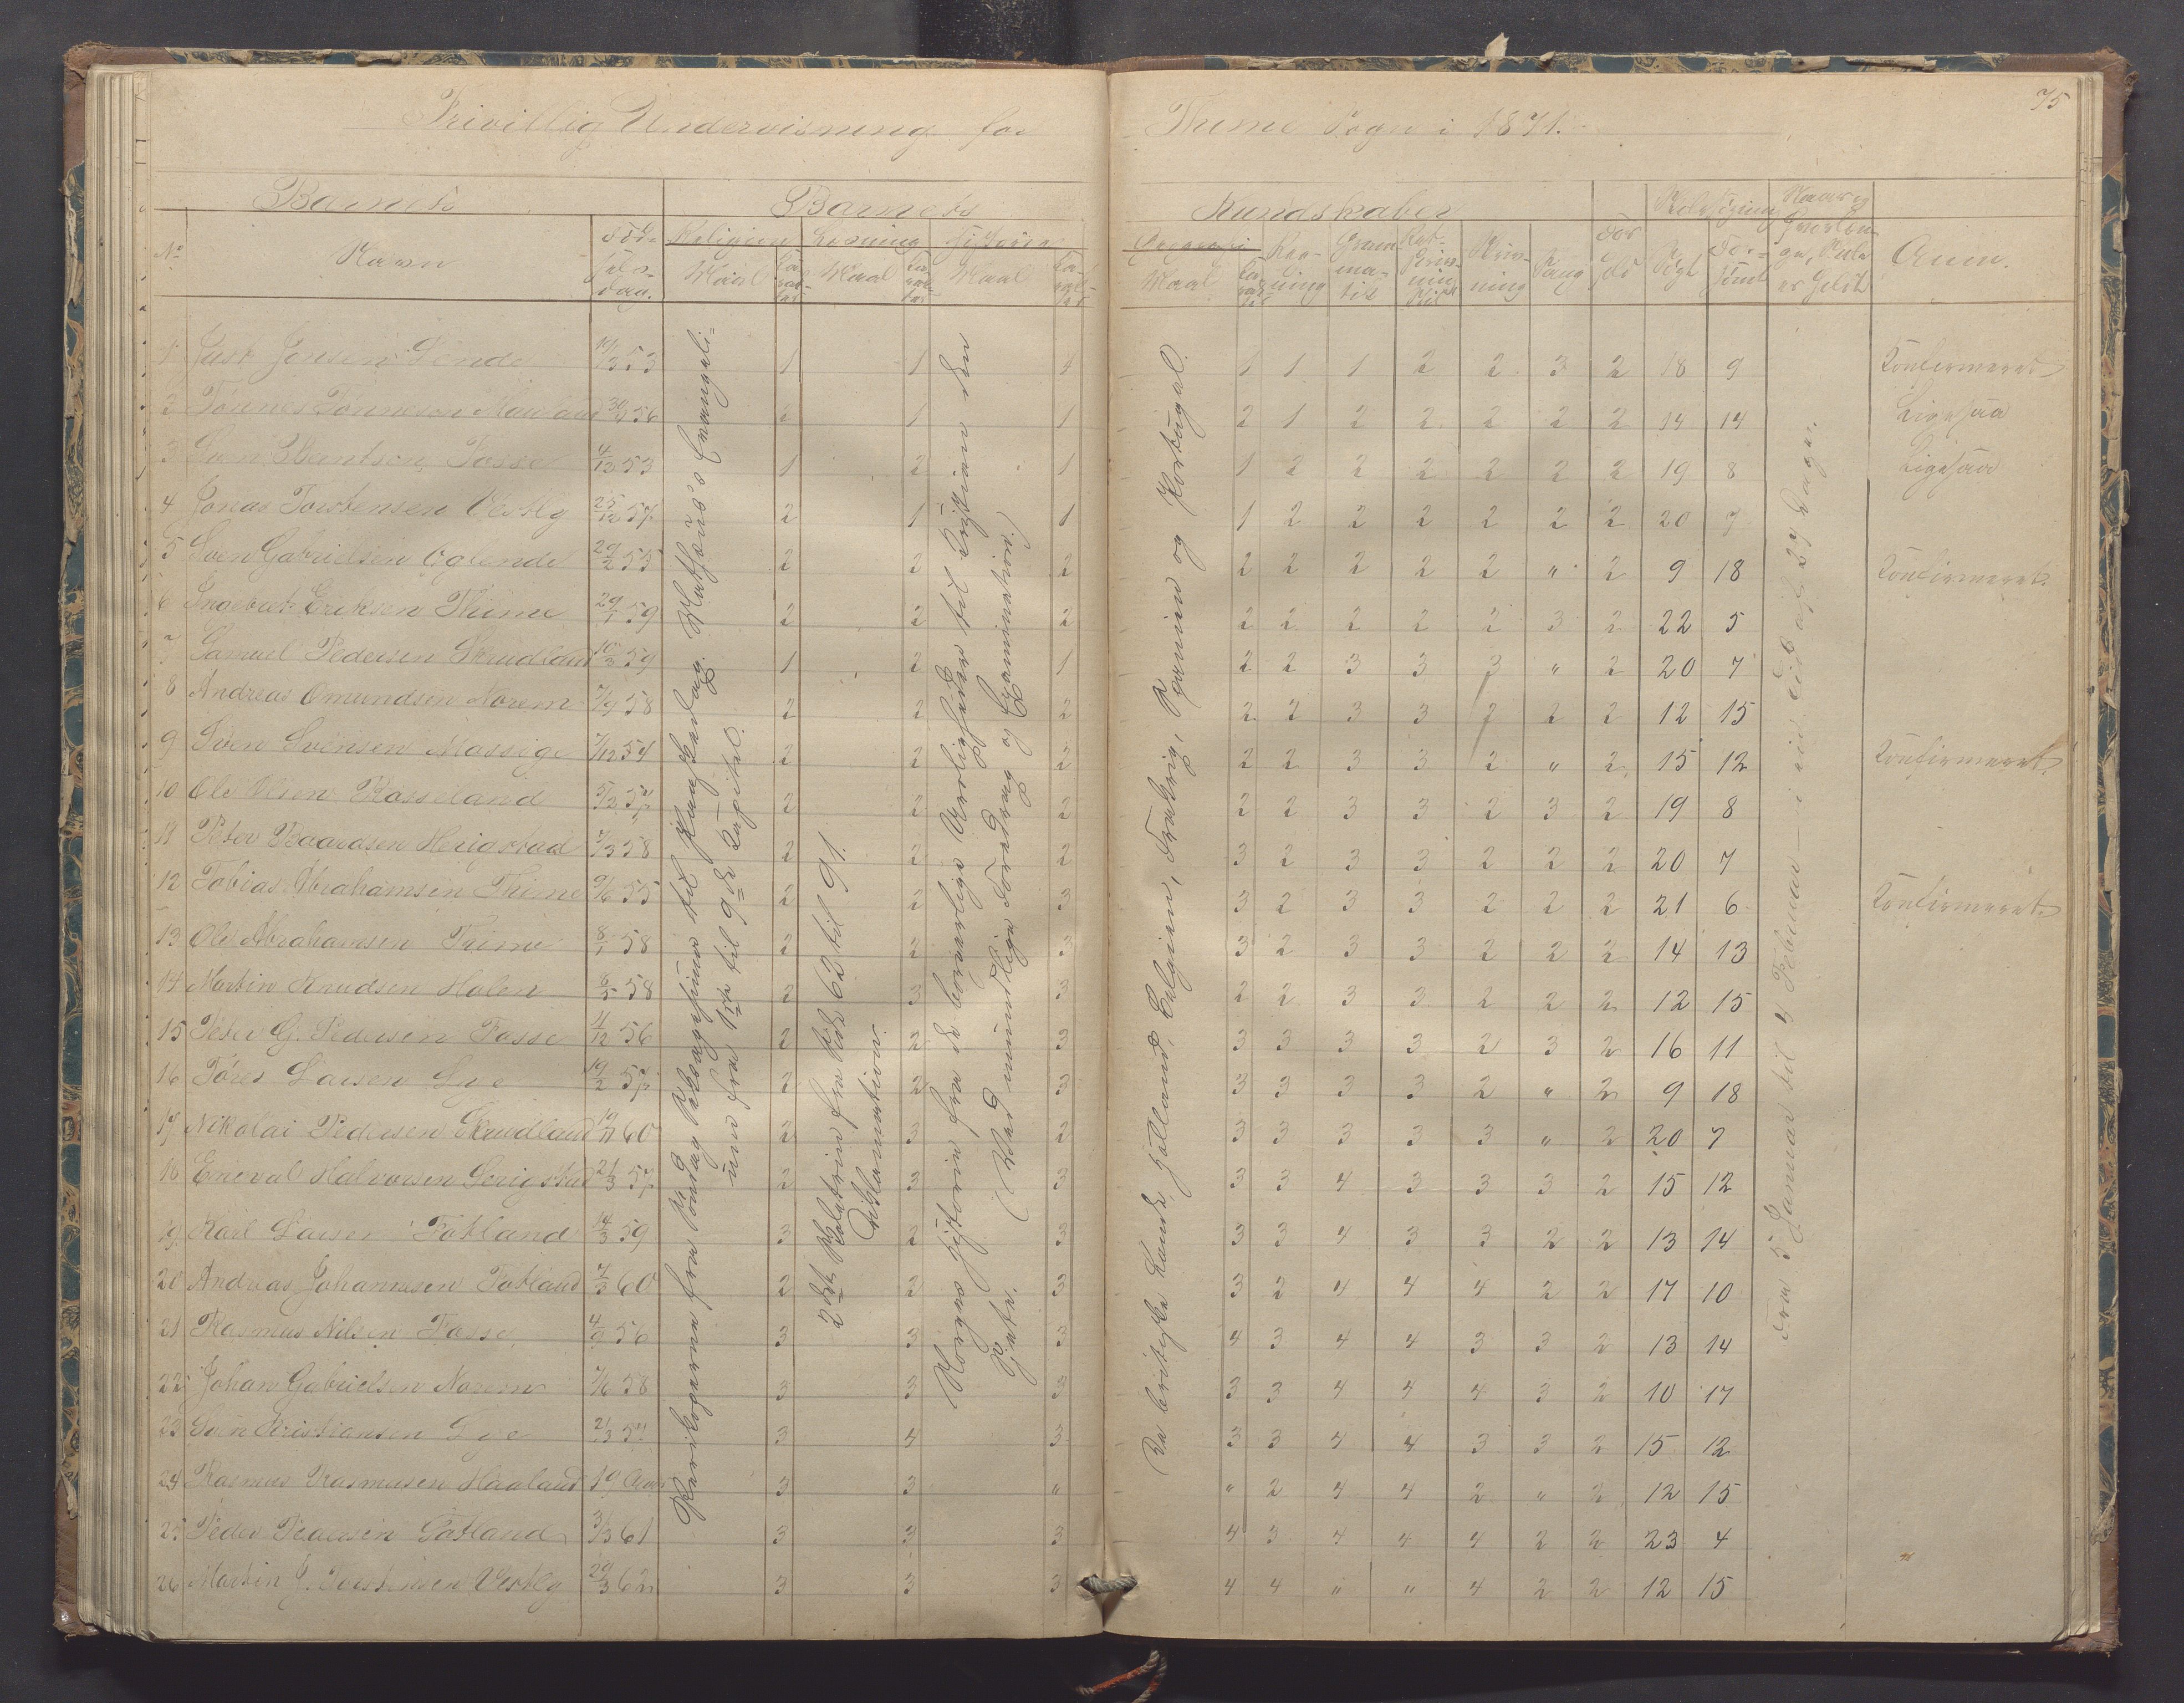 75
Frivillig Undervisning for Thime Sogn i 1871.
Barnets Barnets Kundskaber
No Navn Fødselsdag. Religion Læsning Historie Regning Grammatik Skrivning Sang Søgt Forsømt Anm.
Maal Karakter Maal Karakter Maal Karakter Maal Karakter
1 Jensen 19/3 53 1 1 1 1 1 1 2 2 3 2 18 9 Konfirmeret
2 Tønnes Tønnesen 56 2 1 1 2 1 2 2 2 2 2 14 14 Ligesaa
3 Sven Fosse 4/12 53 1 2 1 1 2 2 2 2 2 2 19 8 Ligesaa
4 Jonas Torstensen Vestly 25/12 57 2 1 1 1 2 2 2 2 2 2 20 7
5 Sven Gabrielsen Øglende 29/2 55 2 2 2 2 2 2 2 2 " 2 9 18 Konfirmeret.
6 Ingebret Eriksen Thime 29/1 59 2 2 2 2 2 2 2 2 3 2 22 5
7 Samuel Pedersen Skrudland 10/3 59 1 2 1 2 2 3 3 3 " 2 20 7
8 Andreas Omundsen Norem 7/9 58 2 2 2 2 2 3 3 2 2 2 12 15
9 Sven Svensen Mossige 7/12 54 2 2 2 2 2 3 3 2 " 2 15 12 Konfirmeret.
10 Ole Olsen Kosseland 5/3 57 2 2 2 2 2 3 3 2 3 2 19 8
11 Peter Baardsen Herigstad 7/3 58 2 2 2 3 2 3 3 2 2 2 20 7
12 Tobias Abrahamsen Thime 9/6 55 2 2 3 3 2 3 3 2 2 2 21 6 Konfirmeret.
13 Ole Abrahamsen Thime 8/1 58 2 2 3 3 2 3 3 2 2 2 14 13
14 Martin Knudsen Holen 8/5 58 2 3 3 2 2 3 3 2 2 2 12 15
15 Peter G. Pedersen Fosse 4/12 56 2 2 3 3 3 3 3 2 3 2 16 11
16 Tøres Larsen Lye 19/2 57 2 2 3 3 3 3 3 2 " 2 9 18
17 Nikolai Pedersen Skrudland 19/11 60 2 3 2 3 3 3 3 3 " 2 20 7
18 Eneval Halvorsen Serigstad 21/3 57 2 3 3 3 3 4 3 3 3 2 15 12
19 Karl Larsen Fotland 14/3 59 3 2 3 3 3 4 3 3 2 2 13 14
20 Andreas Johannesen Fotland 7/3 60 2 2 3 3 2 4 4 4 2 2 17 10
21 Rasmus Nilsen Fosse 4/9 56 3 3 3 4 3 4 4 3 3 2 13 14
22 Johan Gabrielsen Norem 7/6 58 3 3 3 3 3 4 4 4 3 2 10 17
23 Sven Kristiansen Lye 21/3 57 3 4 3 3 3 4 4 3 3 2 15 12
24 Rasmus Rasmusen Haaland 19 Aar 3 3 " " 2 4 4 2 " 2 12 15
25 Peder Pedersen Fotland 3/3 61 3 3 3 4 3 4 4 4 2 2 23 4
26 Martin J. Torstensen Vestly 29/3 62 3 3 3 4 4 " " 4 2 2 12 15
Perikoperne fra Søndag Seksagesima til Paaskedag. Matthæus's Evangelium fra 1ste til 9de Kapitel.
2det Skoletrin fra Side 62 til 91. Deklamation.
Norges Historie fra de borgerlige Uroligheder til Kristian den Sjette. (Ved mundtlige Foredrag og Examination.)
De britiske Lande, Holland, Belgien, Frankrig, Spanien og Portugal.
Fra 5 Januar til 4 Februar – i sid Tid af 27 Dage.